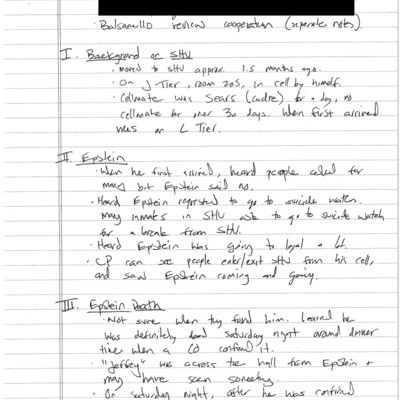 · Balsamello review cooperation (separate notes).
I. Background on SHU
· moved to SHU approx. 1.5 months ago.
· On J Tier, room 205, in cell by himself.
· Cellmate was Sears (cadre) for a day, no
cellmate for over 30 days. When first arrived
was on L Tier.
II. Epstein
· When he first arrived, heard people called for
but Epstein said no.
· Heard Epstein requested to go to suicide watch.
Many inmates in SHU ask to go to suicide watch
for a break from SHU.
· Heard Epstein was going to legal a lot.
· CP can see people enter/exit SHU from his cell,
and saw Epstein coming and going.
III. Epstein Death
· Not sure when they found him. Learned he
was definitely dead Saturday night around dinner
time when a CO confirmed it.
· "Jeffrey" was across the hall from Epstein +
may have seen something.
· On Saturday night, after he was confirmed